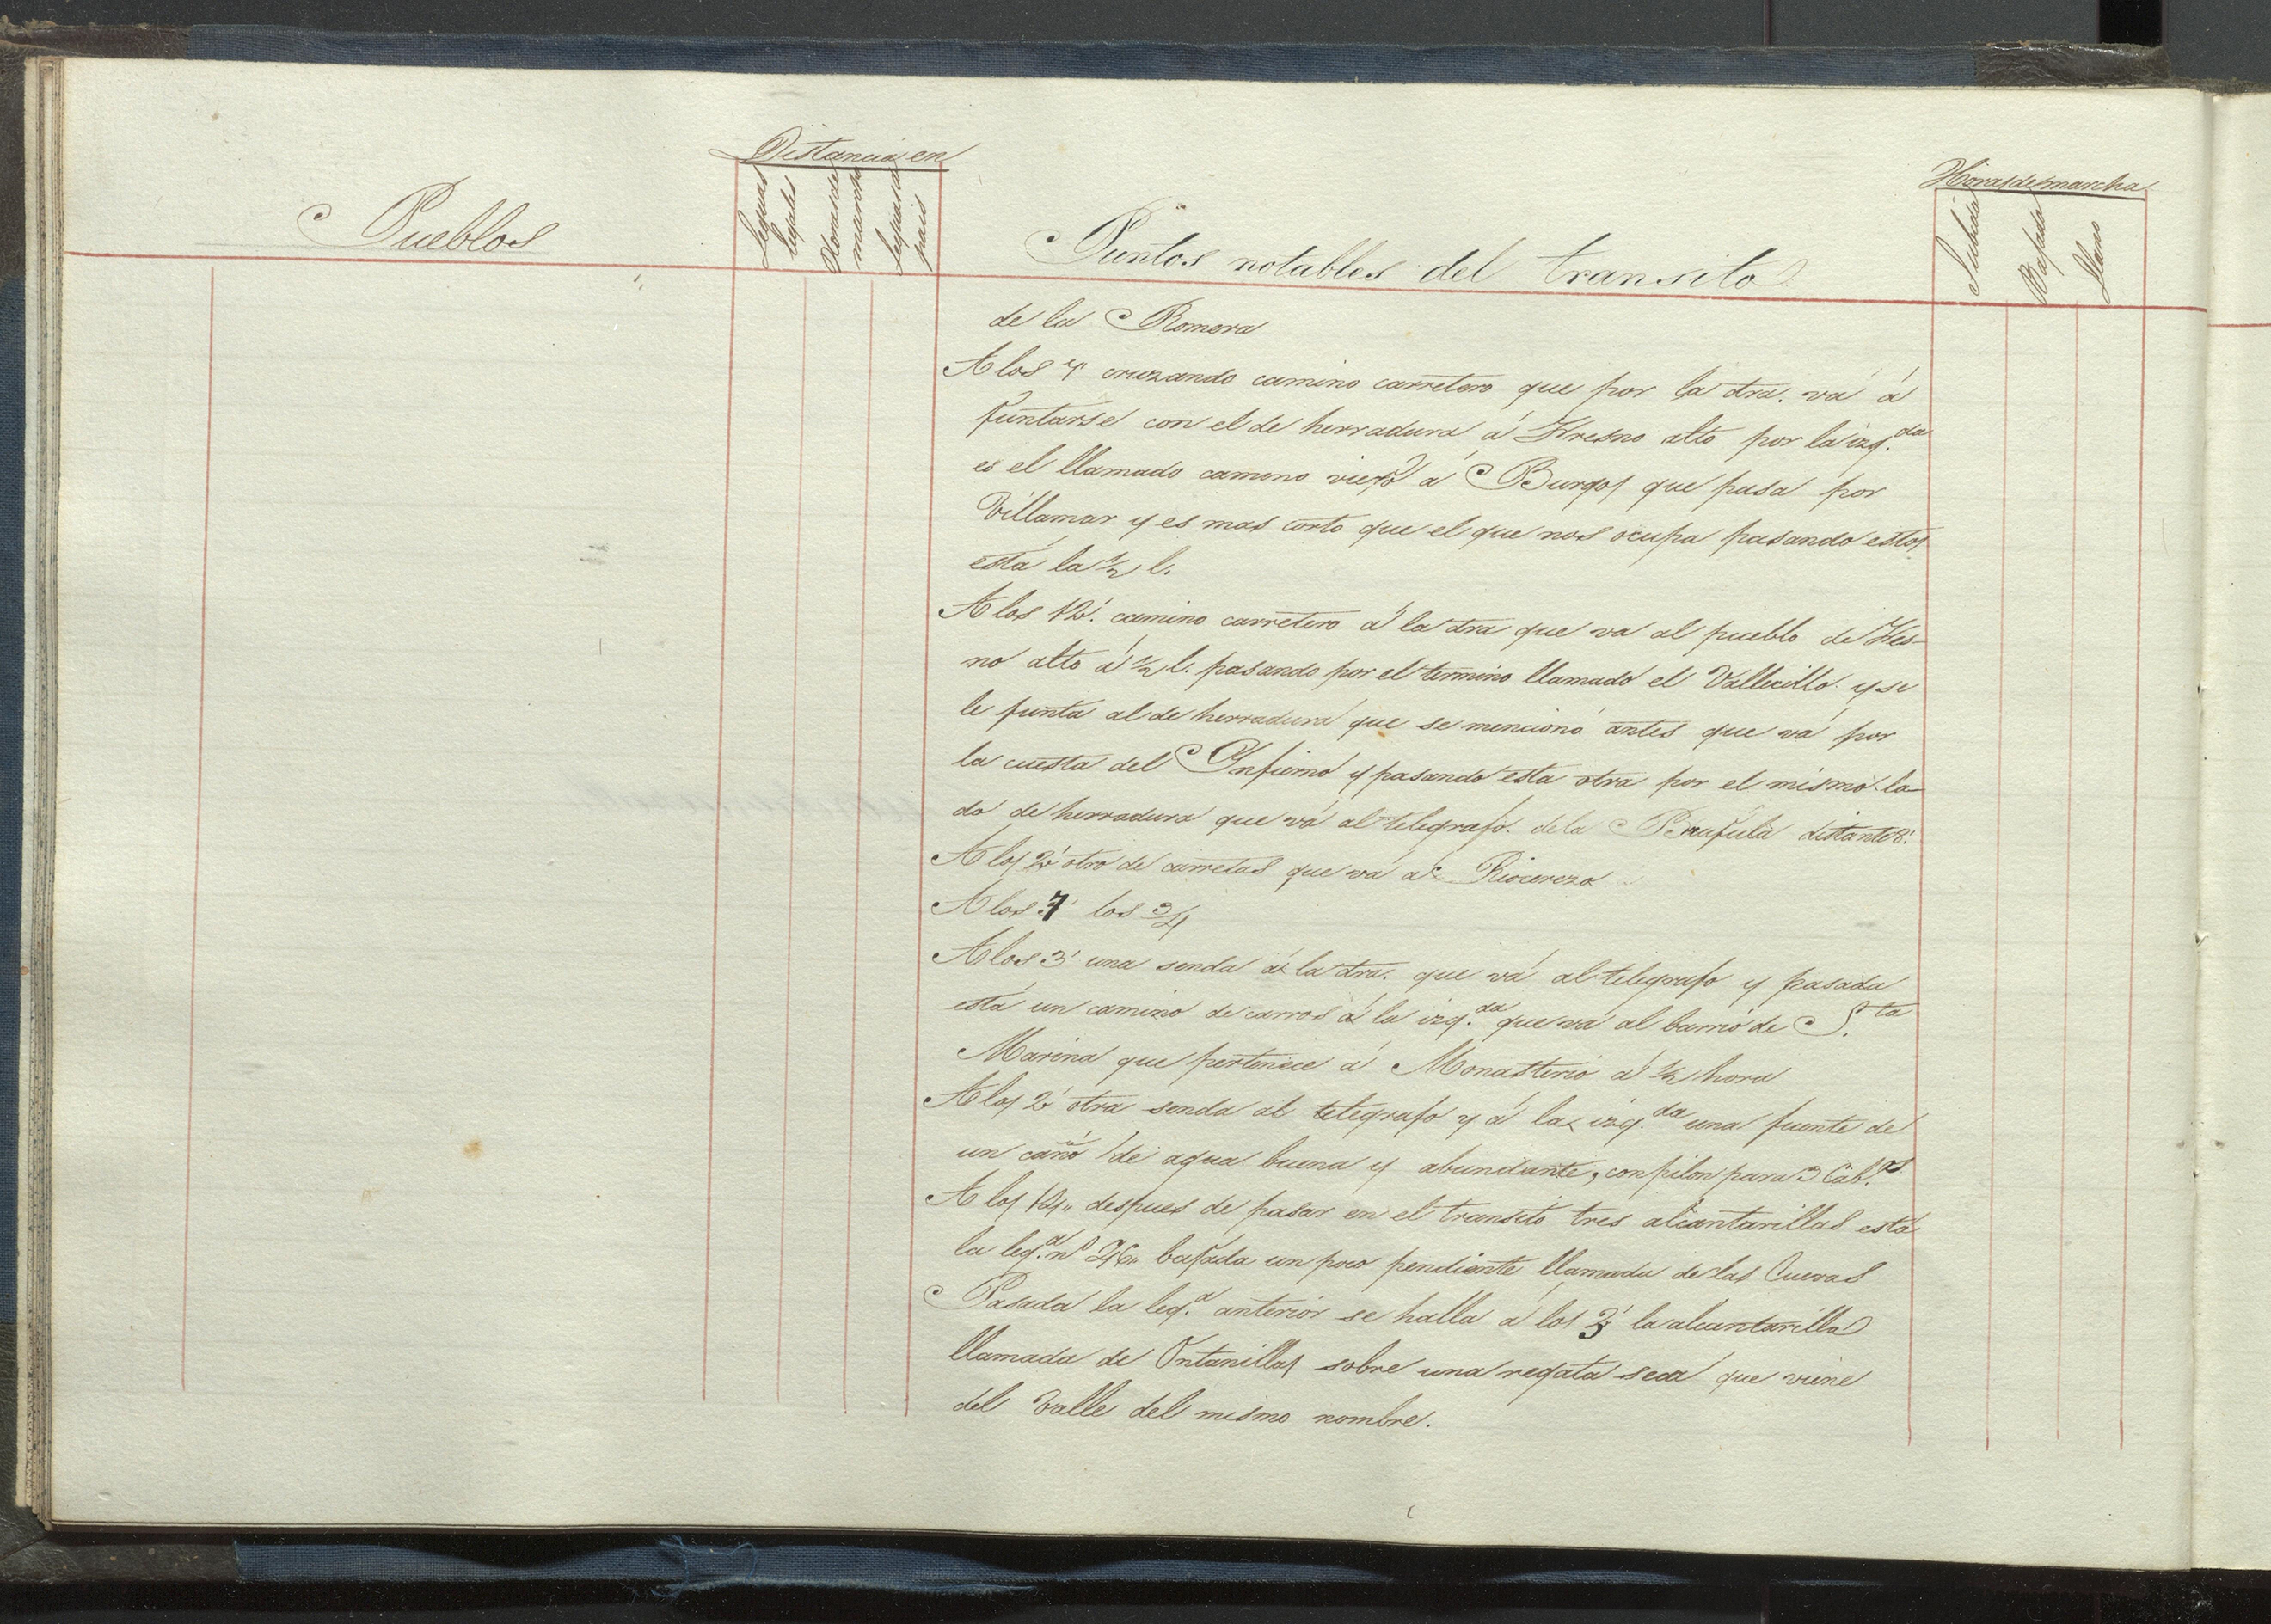 Distancia en
Horas de marcha
Pueblos
Leguas legales
Horas de marcha
Leguas de pais
Puntos notables del transito
Subida
Bajada
Llano
de la Romera
A los 4' cruzando camino carretero que por la dra. vá á
juntarse con el de herradura á Fresno alto por la izq.da
es el llamado camino viejo á Burgos que pasa por
Villamar y es mas corto que el que nos ocupa pasando estos
está la 1/2 l.
A los 12'. camino carretero á la dra que va al pueblo de Fres-
no alto á 1/2 l. pasando por el termino llamado el Vallecillo y se
le junta al de herradura que se mencionó antes que vá por
la cuesta del Infierno y pasando esta otra por el mismo la-
do de herradura que vá al telegrafo de la distante 8'.
A los 2' otro de carretas que vá á Riocerezo
A los 7' los 3/4
A los 3' una senda á la dra. que vá al telegrafo y pasada
esta un camino de carros á la izq.da que vá al barrio de S.ta
Marina que pertenece á Monasterio á 1/2 hora
A los 2' otra senda al telegrafo y á la izq.da una fuente de
un caño de agua buena y abundante, con pilon para 3 Cab.s
A los 14,, despues de pasar en el transito tres alcantarillas está
la leg.a nº 46,, bajada un poco pendiente llamada de las Cuevas
Pasada la leg.a anterior se halla á los 3' la alcantarilla
llamada de Ontanillas sobre una regata seca que viene
del Valle del mismo nombre.